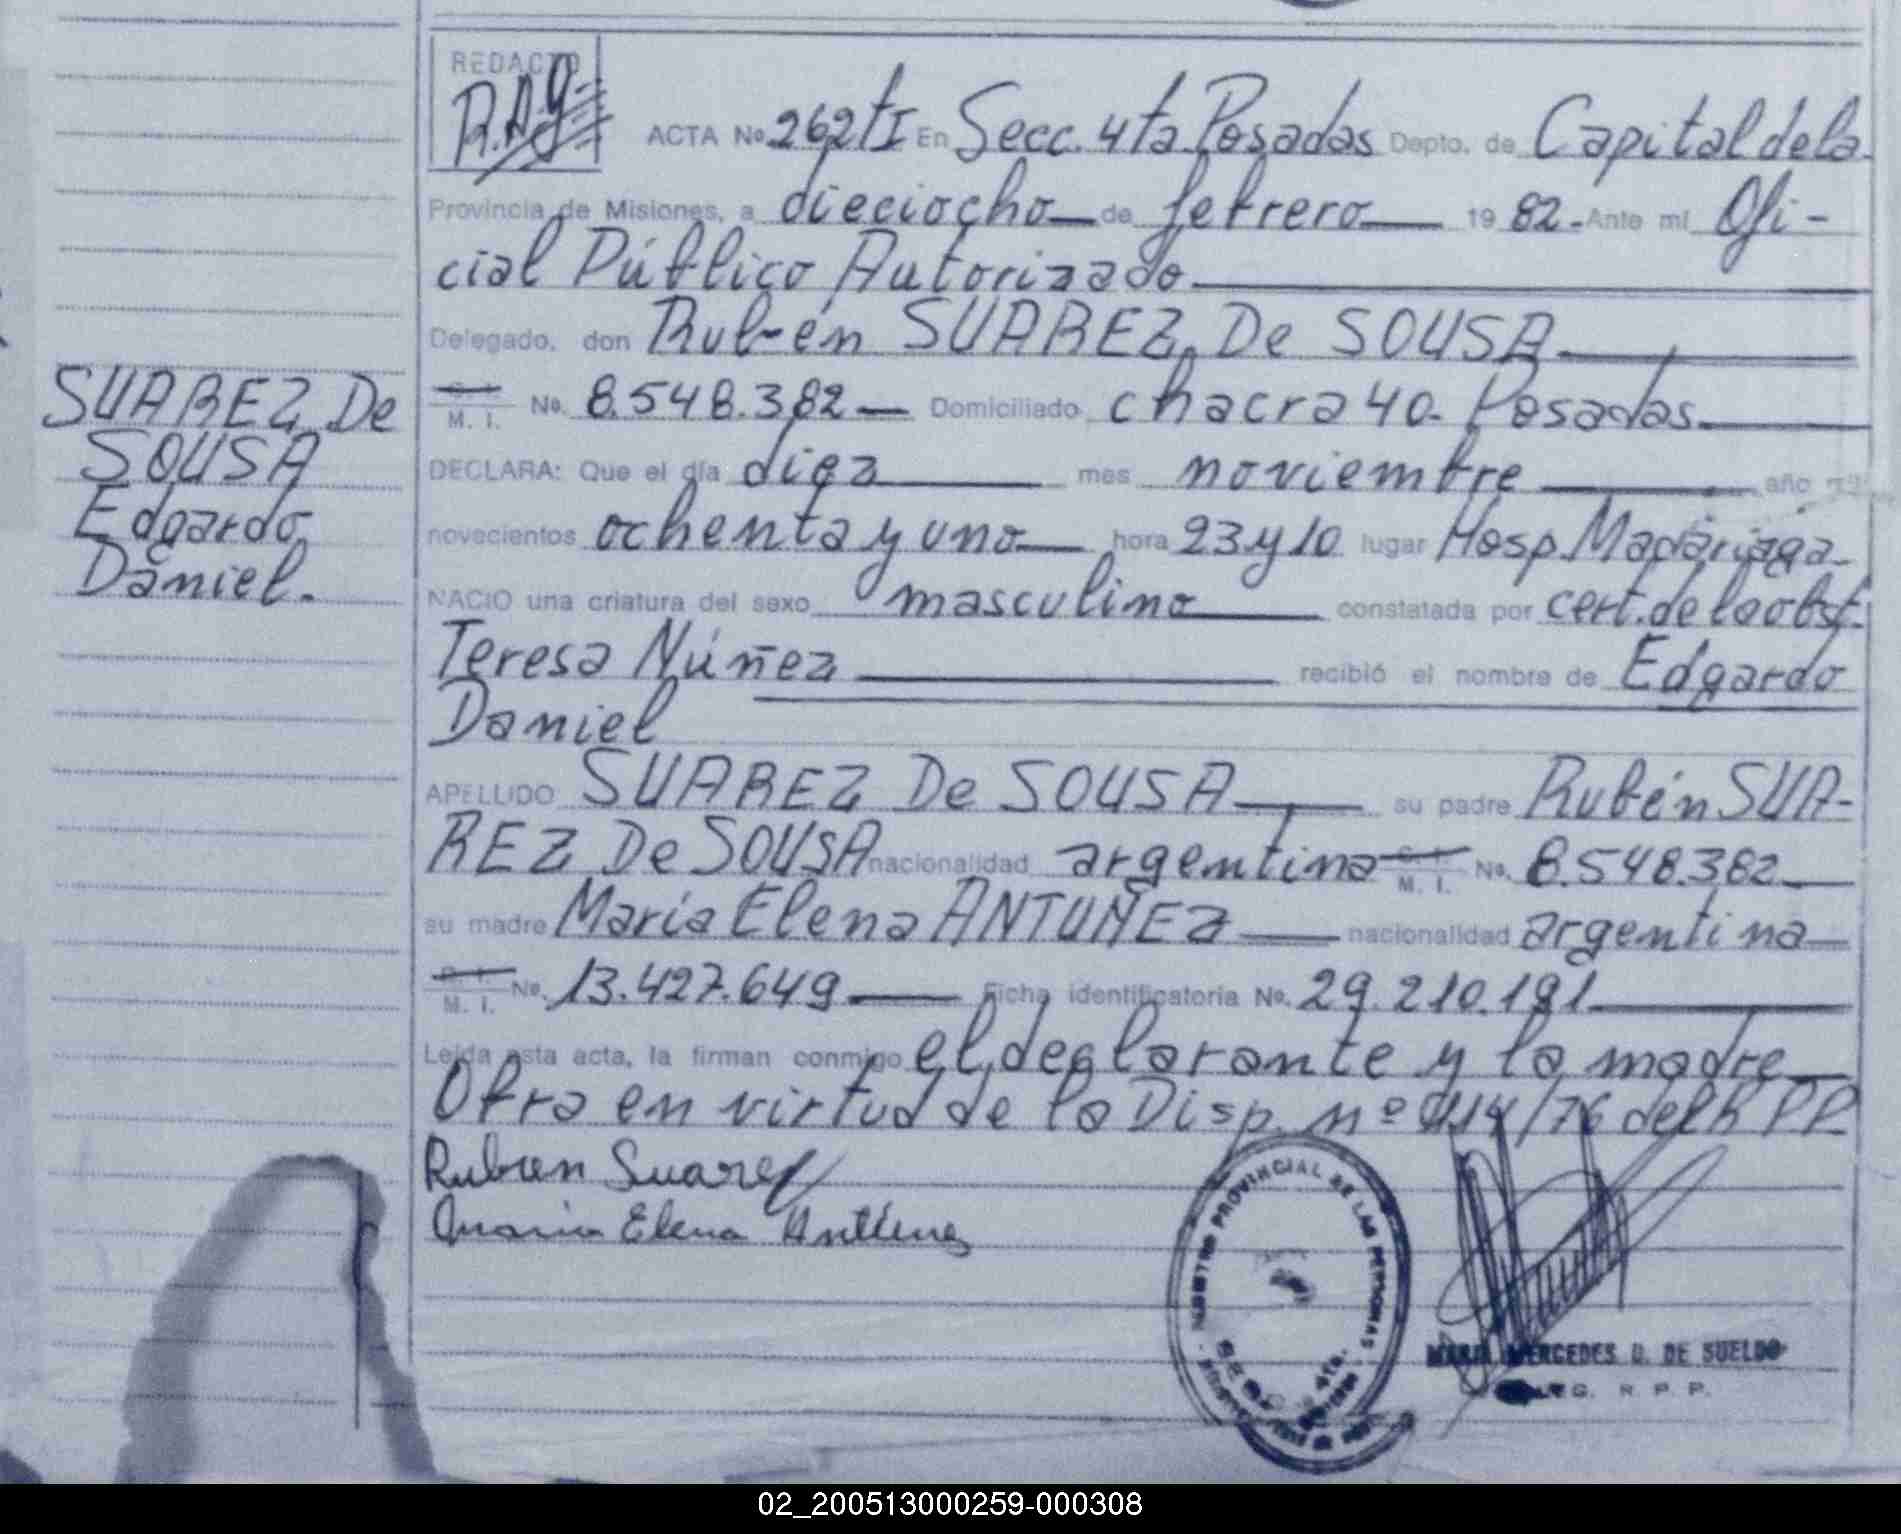 REDACTO
R.A.g.
ACTA No. 262 tI En Secc. 4ta. Posadas Depto. de Capital de la
Provincia de Misiones, a dieciocho de febrero 19 82.- Ante mí Ofi-
cial Público Autorizado
Delegado, don Rubén SUAREZ De SOUSA
M. I. No. 8.548.382 Domiciliado chacra 40. Posadas
SUAREZ De
SOUSA
Edgardo
Daniel.
DECLARA: Que el día diez mes noviembre año
novecientos ochenta y uno hora 23 y 10 lugar Hosp. Madariaga
NACIO una criatura del sexo masculino constatada por cert. de la obst.
Teresa Núñez recibió el nombre de Edgardo
Daniel
APELLIDO SUAREZ De SOUSA su padre Rubén SUA-
REZ De SOUSA nacionalidad argentina M. I. No. 8.548.382
su madre María Elena ANTUÑEZ nacionalidad argentina
M. I. No. 13.427.649 Ficha identificatoria No. 29.210.191
Leída esta acta, la firman conmigo el declarante y la madre
Obra en virtud de la Disp. nº /76 del R P P
Ruben Suarez
Maria Elena Antunez
REGISTRO PROVINCIAL DE LAS PERSONAS
4ta.
MARIA MERCEDES D. DE SUELDO
R. P. P.
02_200513000259-000308